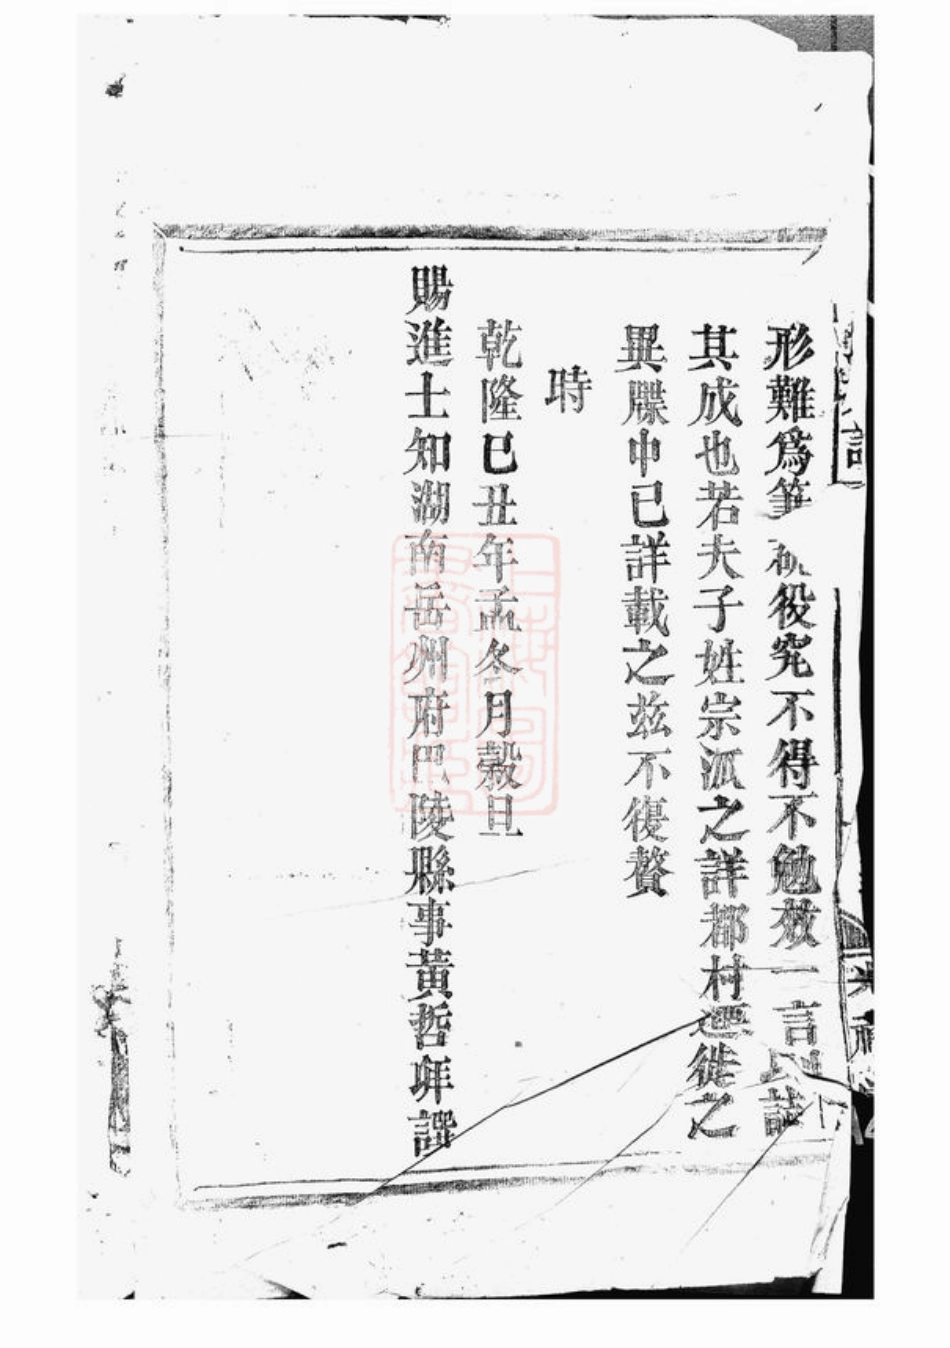 形難爲筆 役究不得不勉效一言 誌
其成也若夫子姓宗派之詳都村遷徙之
異牒中已詳載之茲不復贅
時
乾隆已丑年孟冬月穀旦
賜進士知湖南岳州府巴陵縣事黃哲年譔